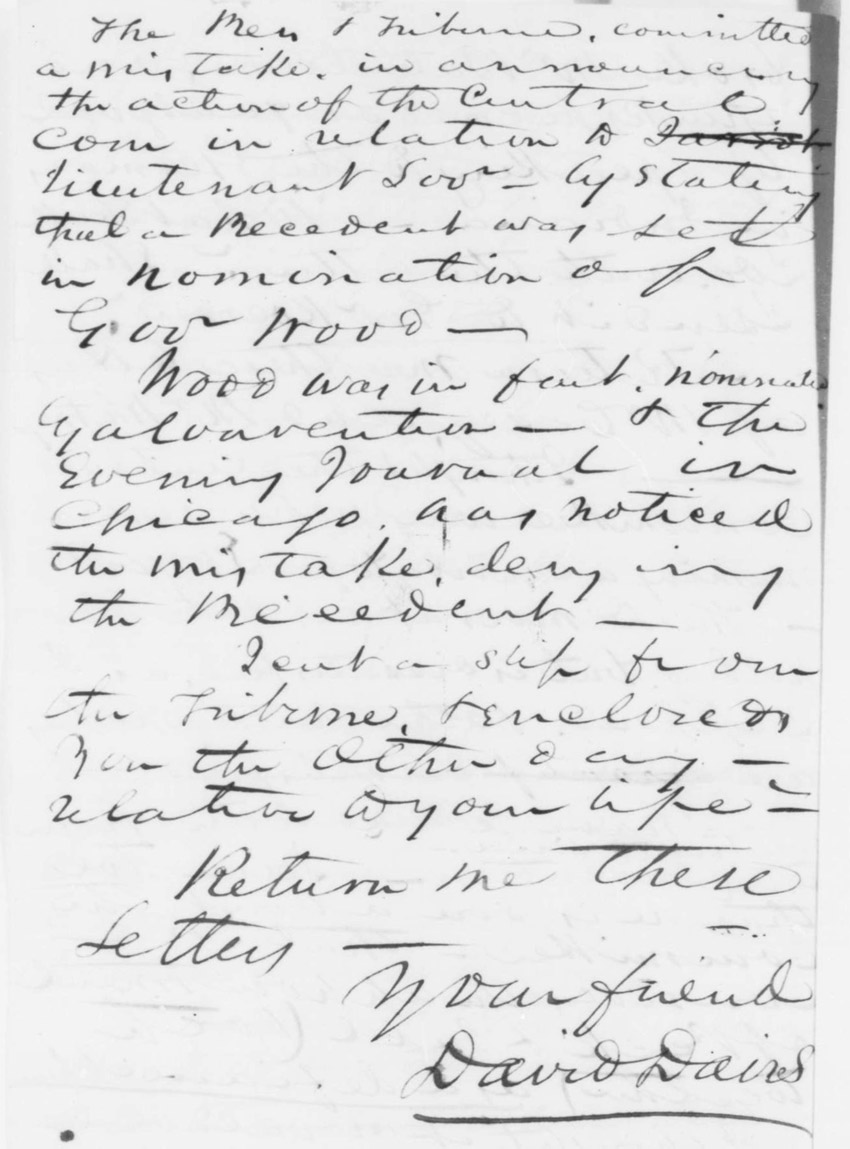 The Press & Tribune, committed
a mistake, in announcing
the action of the Central
Com in relation to
Lieutenant Govr — by stating
that a Precedent was set
in nomination of
Govr Wood —
Wood was in fact, nominated
by a Convention — & the
Evening Journal in
Chicago, has noticed
the mistake, denying
the Precedent —
I cut a slip from
the Tribune, & enclosed to
you the other day —
relative to your life —
Return me these
letters —
Your friend
David Davis